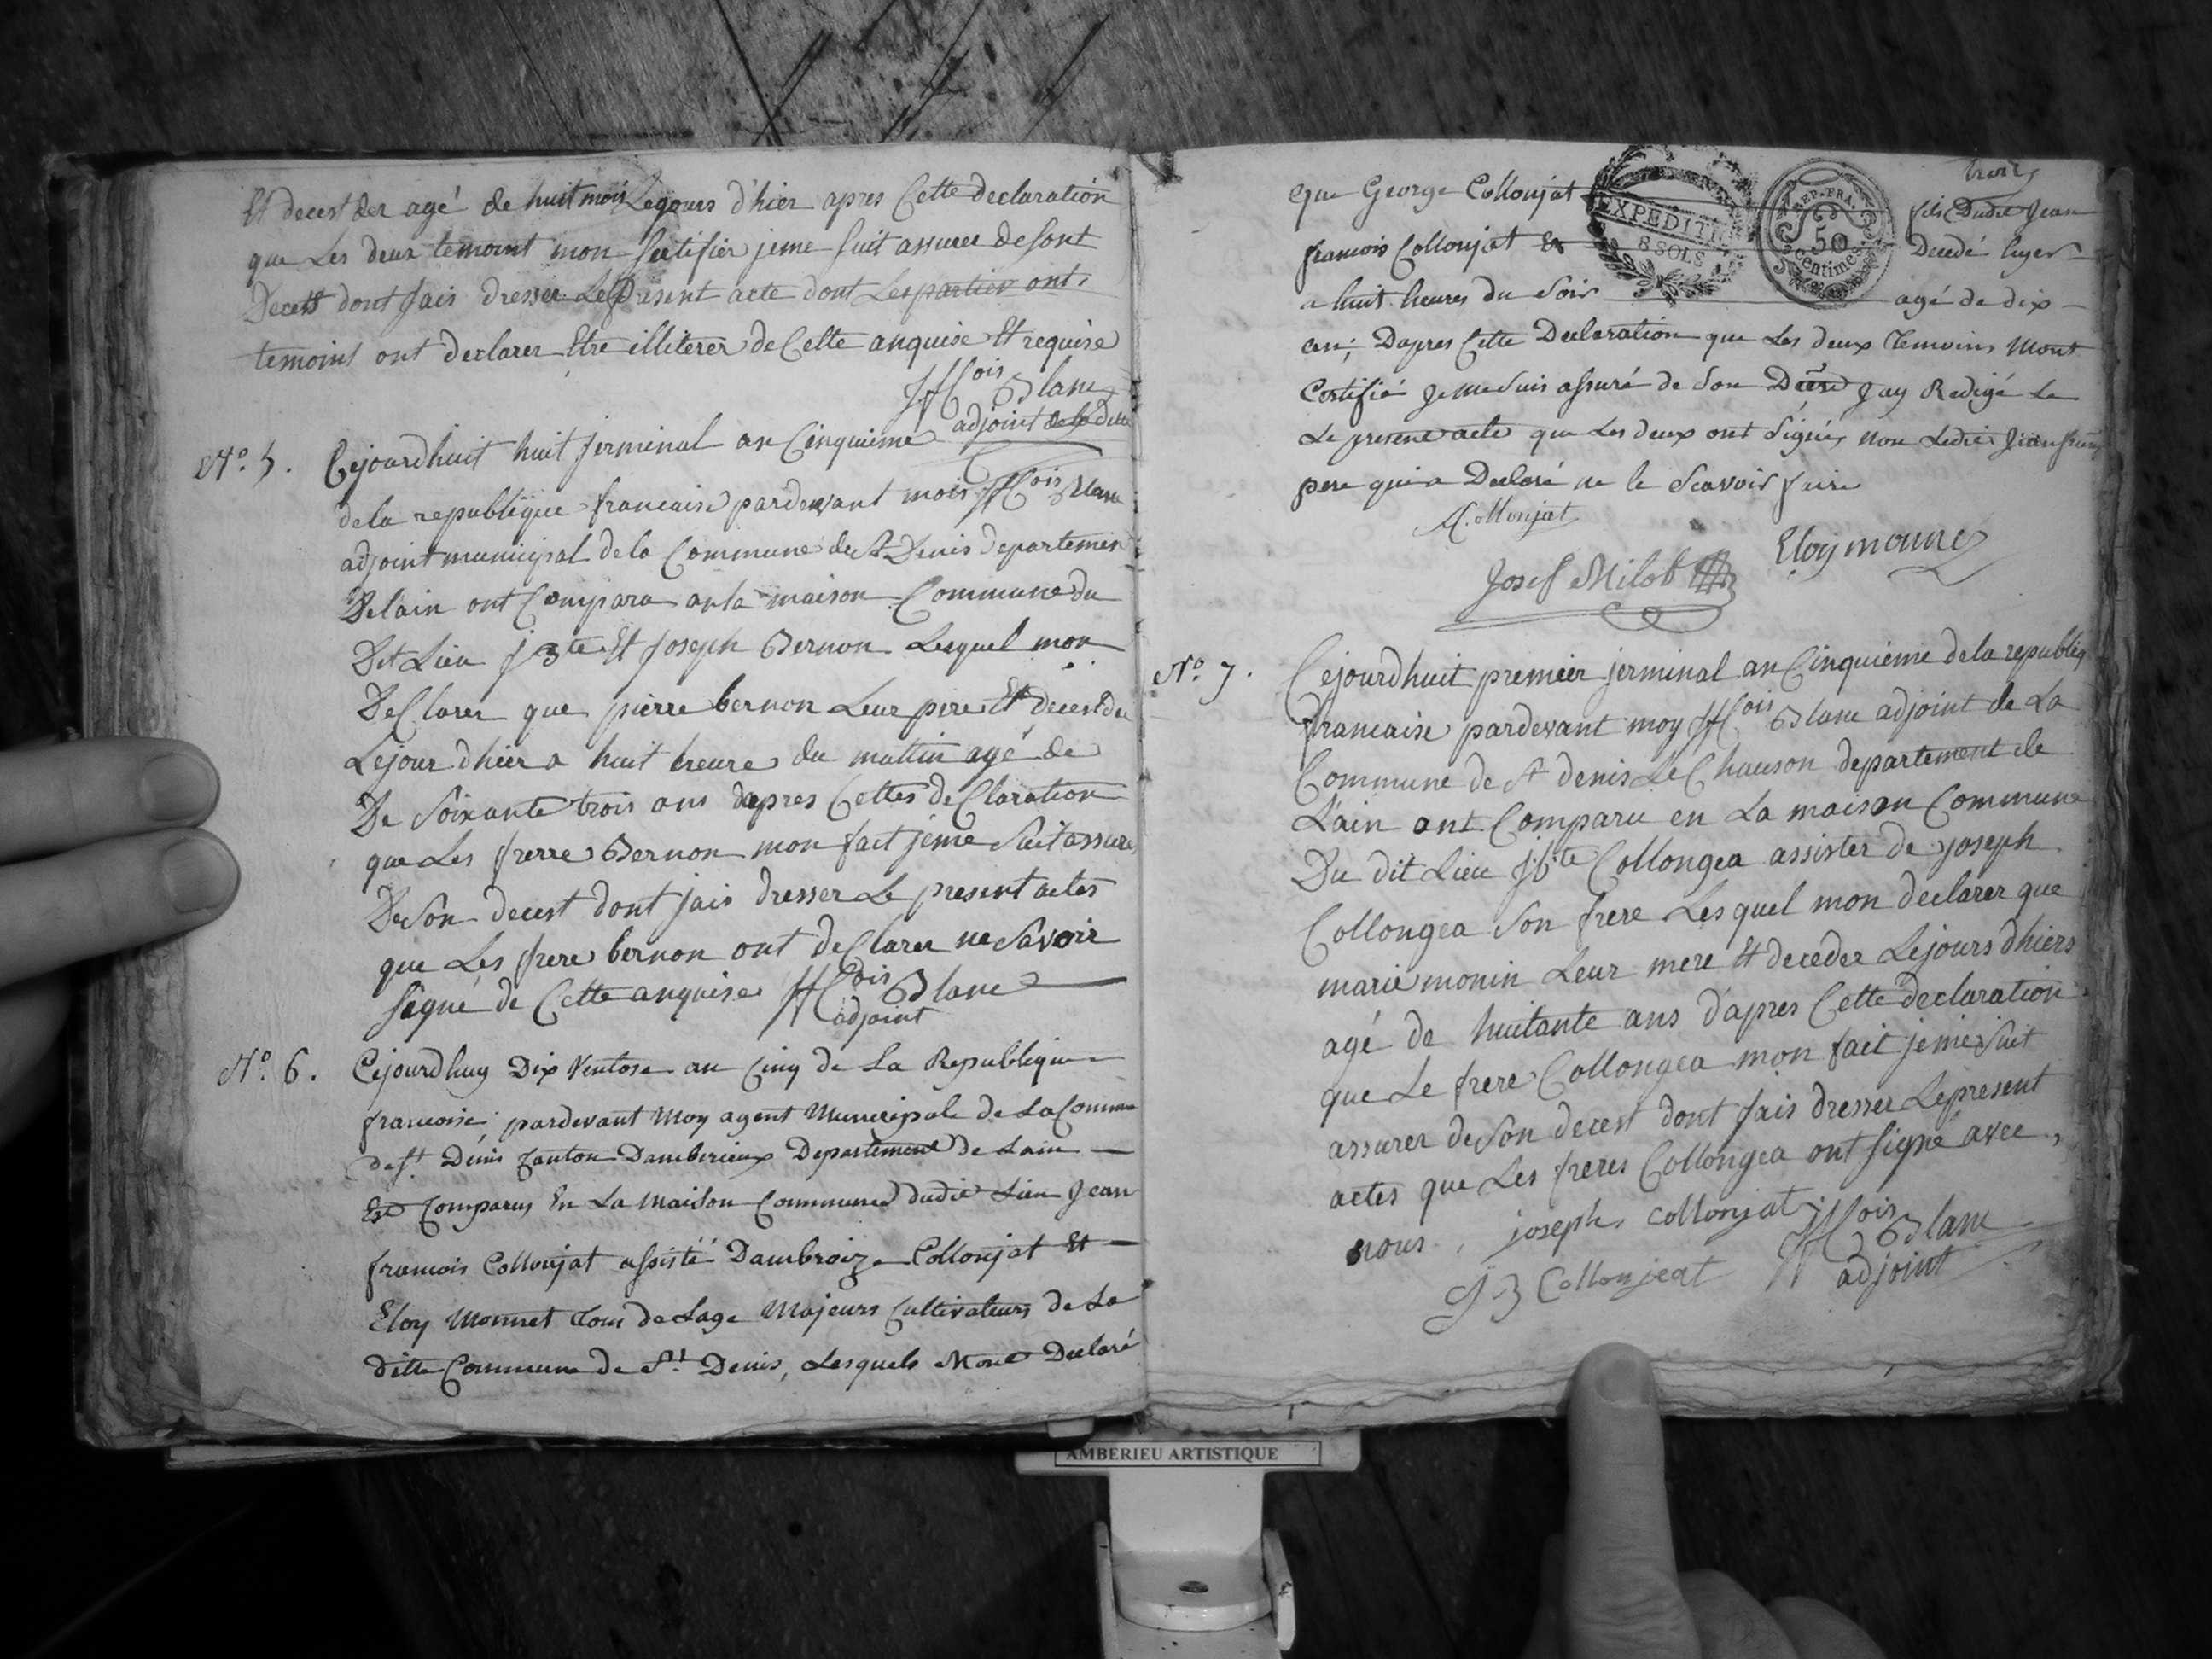 Et decest der agé de huit mois Lejours d'hier apres Cette declaration
que Les deux temoint mon Sertifier jeme suit assurer de sont
Decest dont jais dresser Le present acte dont Les partier ont
temoins ont declarer Etre illiterer de Cette anquise Et requise
ffcois Blanc
adjoint
N° 5. Cejourdhuit huit jerminal an Cinquieme
de la republique francaise pardevant mois ffcois Blanc
adjoint municipal de la Commune de St Denis departement
De lain ont Comparu an la maison Commune du
Dit Lieu jBte Et Joseph Bernon Lesquel mon
DeClarer que pierre bernon Leur pere Et decesdu
Lejour dhier a huit heure du mattin agé de
De Soixante trois ans dapres Cettes deClaration
que Les frerre Bernon mon fait jeme Suit assure
De Son decest dont jais dresser Le present actes
que Les frere bernon ont deClarer ne Savoir
signé de Cette anquise ffcois Blanc
adjoint
N° 6. Cejourdhuy Dix Ventose an Cinq de La Republique
francoise pardevant Moy agent Municipal de La Commune
de St Denis Canton Damberieux Departement de Lain
Est Comparus En La Maison Commune dudit Lieu Jean
francois Collonjat assisté Dambroize Collonjat Et
Eloy Monnet Tous de Lage Majeurs Cultivateurs de La
ditte Commune de St Denis, Lesquels Mont Declaré
que George Collonjat
fils Dudit Jean
francois Collonjat Decedé hyer
a huit heures du Soir agé de dix
EXPEDIT
8 SOLS
REP. FRA.
50
centimes
an; Dapres Cette Declaration que Les deux Temoins Mont
Certifié Je me Suis assuré de Son Décé Jay Redigé Le
Le present acte que Les deux ont Signés non Ledit Jean fran
pere qui a Declaré ne le Scavoir faire
A. Collonjat
Eloy moune
Josef Milot
N° 7. Cejourdhuit premier jerminal an Cinquieme de la republiq
francaise pardevant moy ffcois Blanc adjoint de La
Commune de St denis Le Chauson departement de
L'ain ont Comparu en La maison Commune
Du dit Lieu jbte Collongea assister de joseph
Collongea Son frere Lesquel mon declarer que
marie monin Leur mere Et deceder Lejours dhiers
agé de huitante ans d'apres Cette declaration
que Le frere Collongea mon fait jeme Suit
assurer de Son decest dont jais dresser Le present
actes que Les freres Collongea ont signé avec
nous joseph collonjat ffcois Blanc
J B Collonjeat adjoint
AMBERIEU ARTISTIQUE